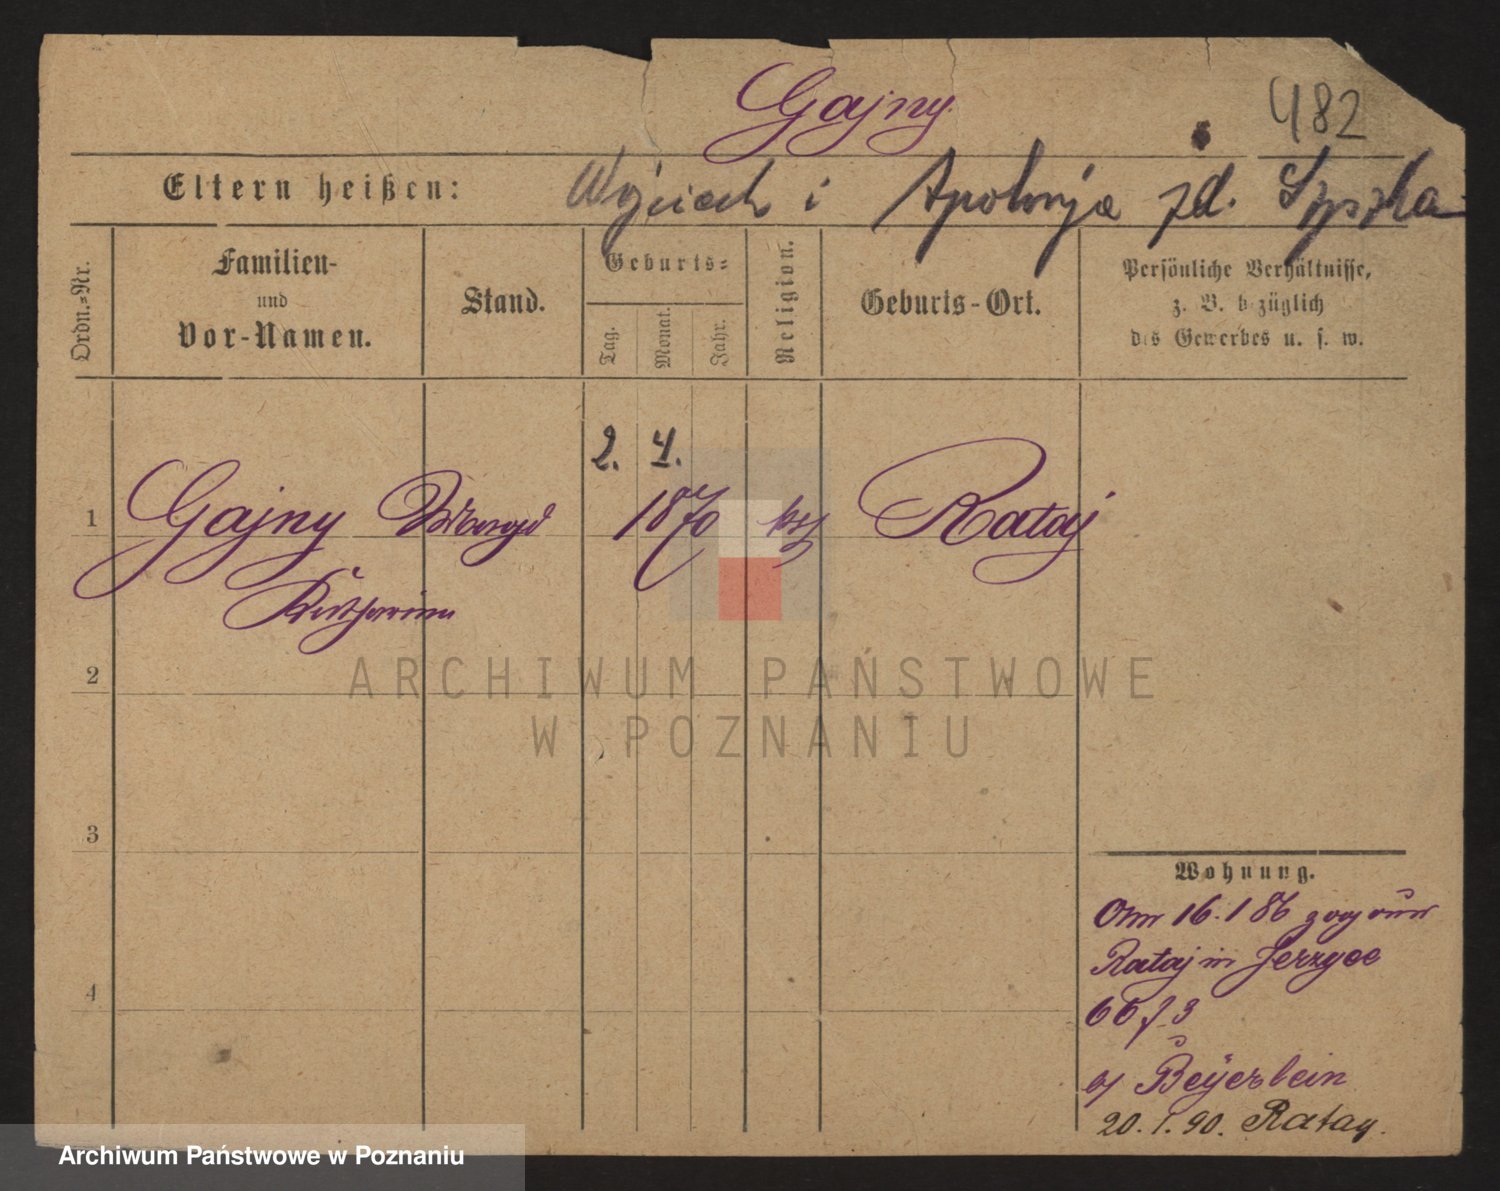 Gajny.
482
Eltern heißen: Wojciech i Apolonja zd. Szyszka
Ordn.=Nr.
Familien-
und
Vor-Namen.
Stand.
Geburts=
Tag.
Monat.
Jahr.
Religion.
Geburts-Ort.
Persönliche Verhältnisse,
z. B. bezüglich
des Gewerbes u. s. w.
2. 4.
1 Gajny Magd 1870 kth Rataj
Katharina
2
3
4
Wohnung.
16. 1 86 zog
Rataj in Jerzyce
66 f 3
Beÿerlein
20. 1. 90. Ratay.
ARCHIWUM PAŃSTWOWE
W POZNANIU
Archiwum Państwowe w Poznaniu